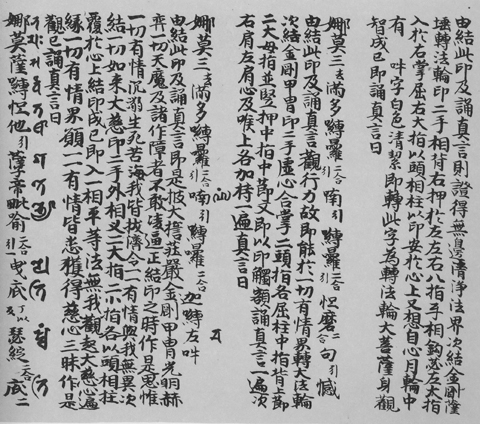 由結此印及誦真言則證得無邊清淨法界次結金剛薩
埵轉法輪印二手相背右押於左左右八指手相鈎苾左大指
入於右掌屈右大指以頭相柱以印安於心上又想自心月輪中
有𤙖字白色清潔即轉此字為轉法輪大菩薩身觀
智成已即誦真言曰
娜莫三去滿多轉羅二合引喃引轉羅二合怛磨合二句引憾
由結此印及誦真言觀行力故即能於一切有情界轉大法輪
次結金剛甲冑印二手虛心合掌二頭指各屈柱中指背上節
二大母指並竪押中指中節文即以印觸額誦真言一遍次
右肩左肩心及喉上各加持一遍真言曰
娜莫三去滿多轉羅二合引喃引轉羅二合迦轉左吽
由結此印及誦真言即是被大誓莊嚴金剛甲冑光明赫
弈一切天魔及諸作障者不敢凌逼正結印之時作是思惟
一切有情沉溺生死苦海我皆拔濟令一一有情與我無異次
結一切如來大慈印二手外相叉二大指二小指各以頭相柱
覆於心上結印成已即入一相平等法無我觀起大慈心遍
緣一切有情界願一一有情皆悉獲得慈心三昧作是
觀已誦真言曰
娜莫薩轉怛他引孽帝毗喻二合引曳底丁以反瑟綻二合底二